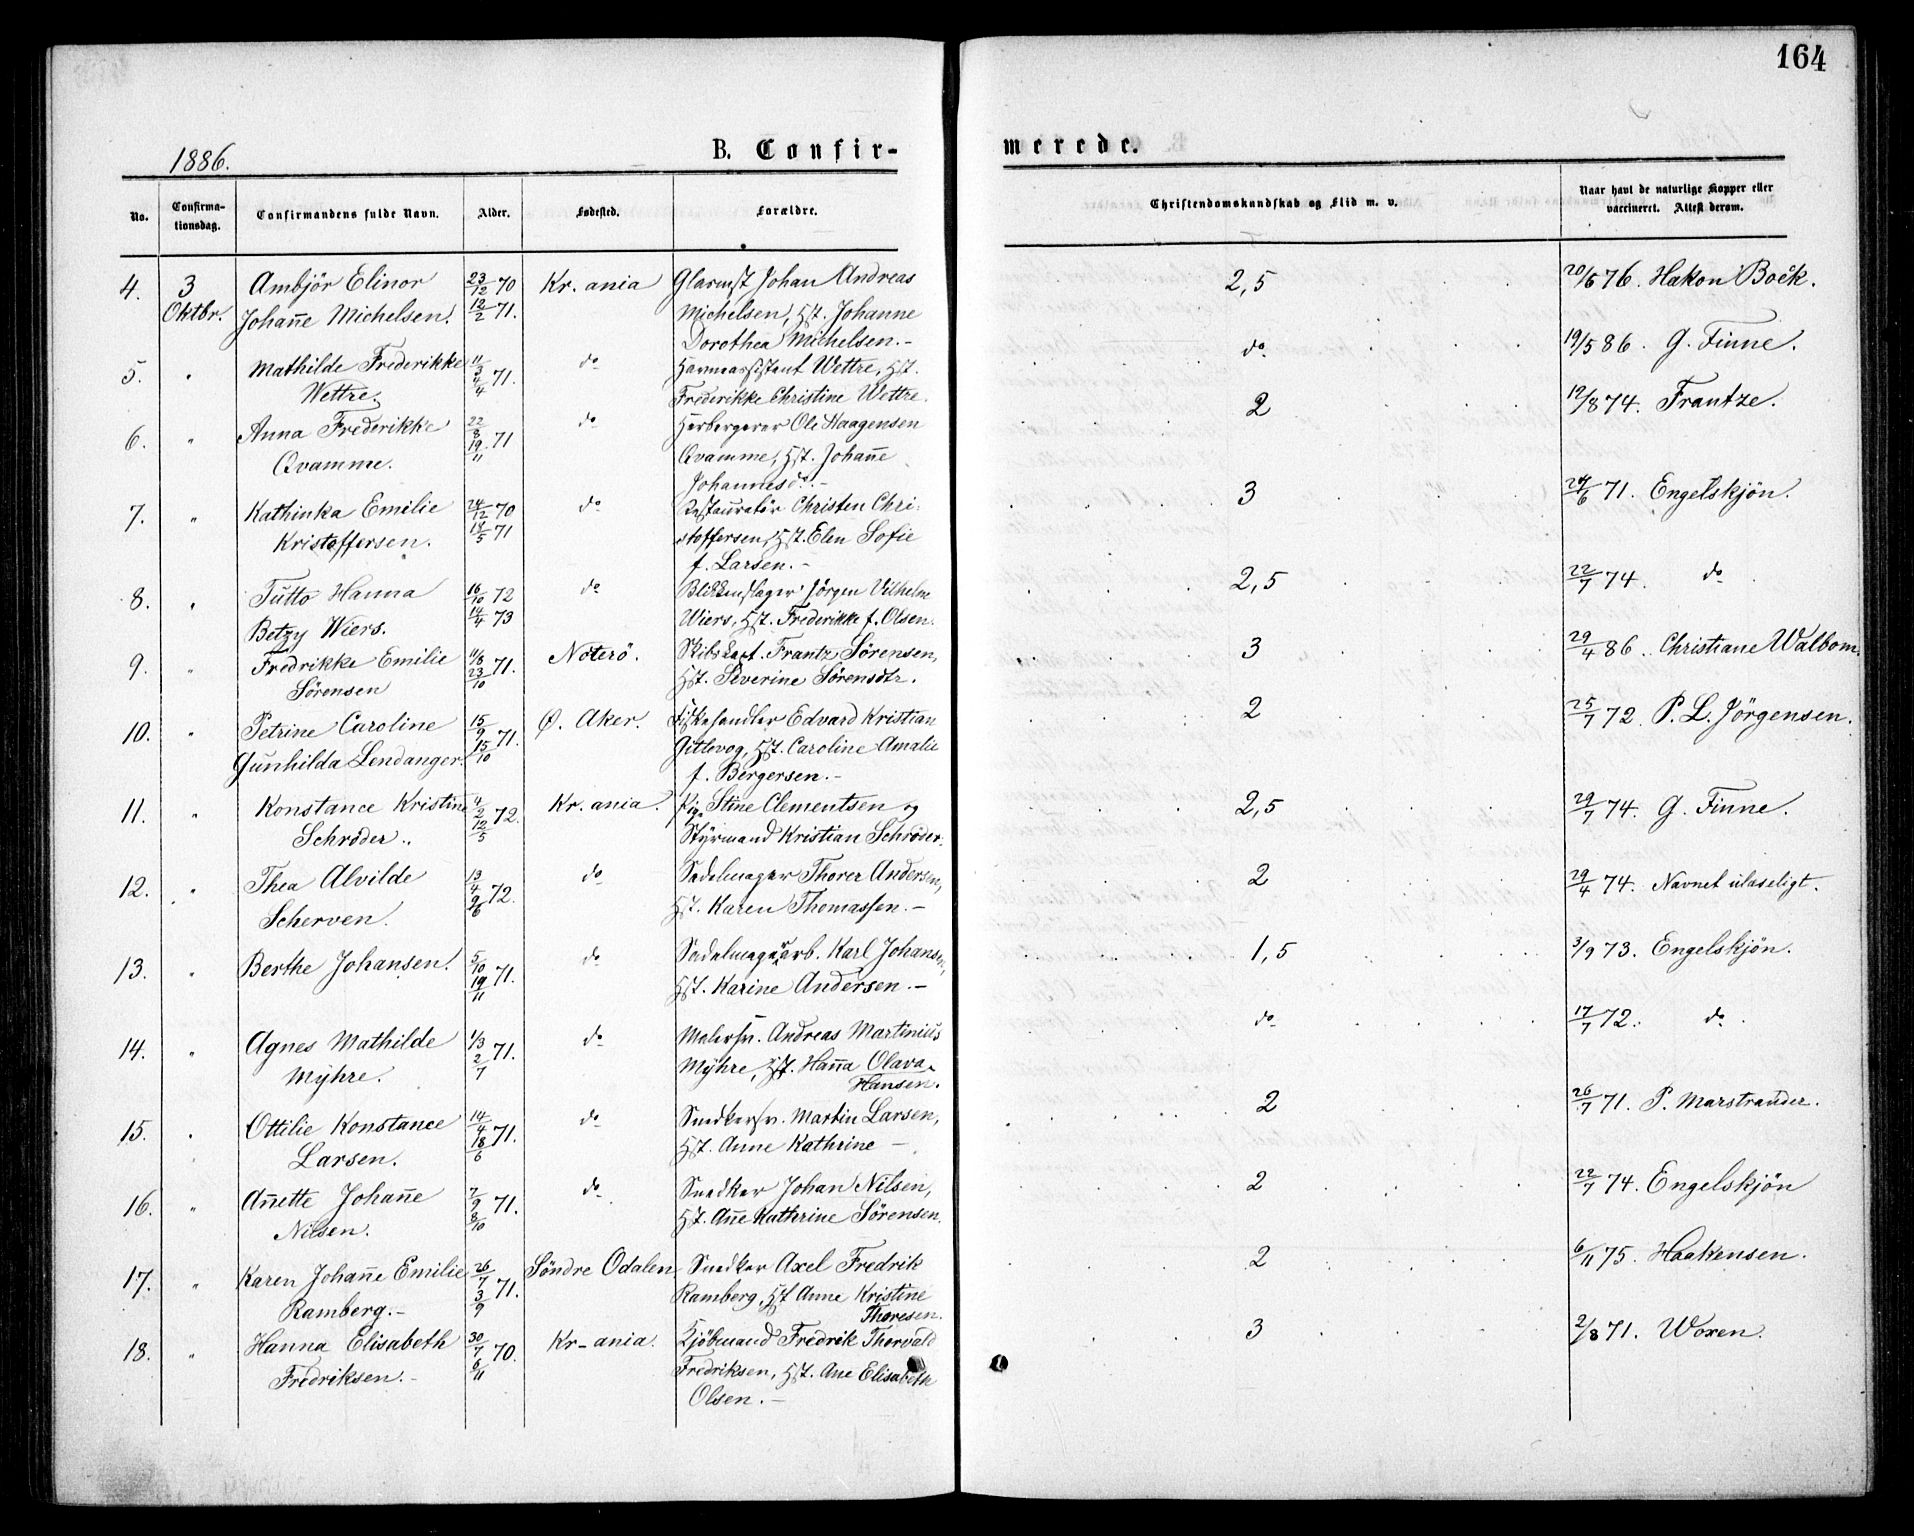 164
1886.
B. Confir-
merede.
No.
Confirma-
tionsdag.
Confirmandens fulde Navn.
Alder.
Fødested.
Forældre.
Christendomskundskab og Flid m. v.
Naar havt de naturlige Kopper eller
vaccineret. Attest derom.
4. 3 Ambjör Elinor 23/12 70 Kr. ania Glasmst Johan Andreas 2,5 20/6 76. Hakon Boek.
Oktbr. Johañe Michelsen. 12/2 71. Michelsen, Hst. Johanne
Dorothea Michelsen.-
5. " Mathilde Frederikke 11/3 do Havneassistent Wettre, Hst. do. 19/5 86. G. Finne.
Wettre. 4/4 71. Frederikke Christine Wettre.
6. " Anna Frederikke 22/8 do Herbergerer Ole Haagensen 2 12/8 74. Frantze.
Qvamme. 19/11 71 Qvamme, Hst. Johañe
Johannesd.-
7. " Kathinka Emilie 24/12 70 do Restauratör Christen Chri- 3 24/6 71. Engelskjön.
Kristoffersen. 14/5 71 stoffersen, Hst. Elen Sofie
f. Larsen.-
8. " Tutto Hanna 16/10 72 do Blikkenslager Jörgen Vilhelm 2,5 22/7 74. do
Betzy Wiers. 14/4 73 Wiers, Hst. Frederikke f. Olsen.
9. " Fredrikke Emilie 11/8 71. Noterö. Skibskapt. Frantz Sörensen, 3 29/4 86. Christiane Walbom.
Sörensen 23/10 Hst. Severine Sörensdtr.
10. " Petrine Caroline 15/9 71. Ø. Aker. Fiskehandler Edvard Kristian 2 25/7 72. P. L. Jörgensen.
Gunhilda Lendanger. 15/10 Gitlevog, Hst. Caroline Amalie
f. Bergersen.-
11. " Konstance Kristine 4/2 72. Kr. ania. Pige Stine Clementsen og 2,5 29/7 74. G. Finne.
Schrøder.. 12/5 Styrmand Kristian Schrøder.
12. " Thea Alvilde 13/4 72. do Sadelmager Thorer Andersen, 2 29/4 74. Navnet ulæseligt.
Scherven. 9/6 Hst. Karen Thomassen.-
13. " Berthe Johansen. 5/10 71. do Sadelmagerarb. Karl Johansen, 1,5 3/9 73. Engelskjön.
19/11 Hst. Karine Andersen.-
14. " Agnes Mathilde 1/3 71. do Malersv. Andreas Martinius do 17/7 72. do.
Mÿhre. 2/7 Mÿhre, Hst. Hañna Olava
Hansen.
15. " Ottilie Konstance 14/4 71. do Snedkersv. Martin Larsen, 2 26/7 71. P. Marstrander.
Larsen. 18/6 Hst. Anne Kathrine -
16. " Añette Johañe 7/9 71. do Snedker Johan Nilsen, 2 22/7 74. Engelskjön
Nilsen. 8/10 Hst. Añe Kathrine Sörensen.
17. " Karen Johañe Emilie 26/7 71. Söndre Odalen Snedker Axel Fredrik 2 6/11 75. Haakensen.
Ramberg.- 3/9 Ramberg, Hst Anne Kristine
Thoresen.
18. " Hanna Elisabeth 30/7 70. Kr-ania. Kjöbmand Fredrik Thorvald 3 2/8 71. Woxen.
Fredriksen.- 6/11 Fredriksen, Hst. Ane Elisabeth
Olsen.-